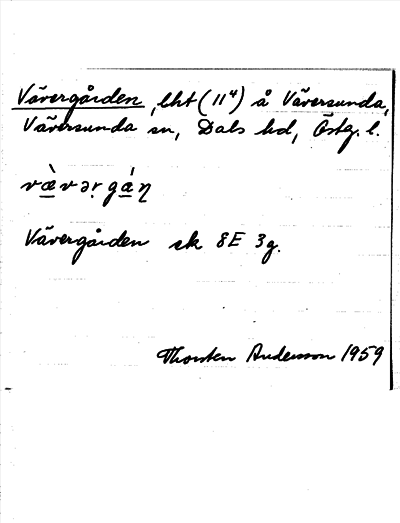 Vävergården, lht (11⁴) å Väversunda,
Väversunda sn, Dals hd, Östg. l.
væ̀vər̥gáη
Vävergården ek 8E 3g.
Thorsten Andersson 1959